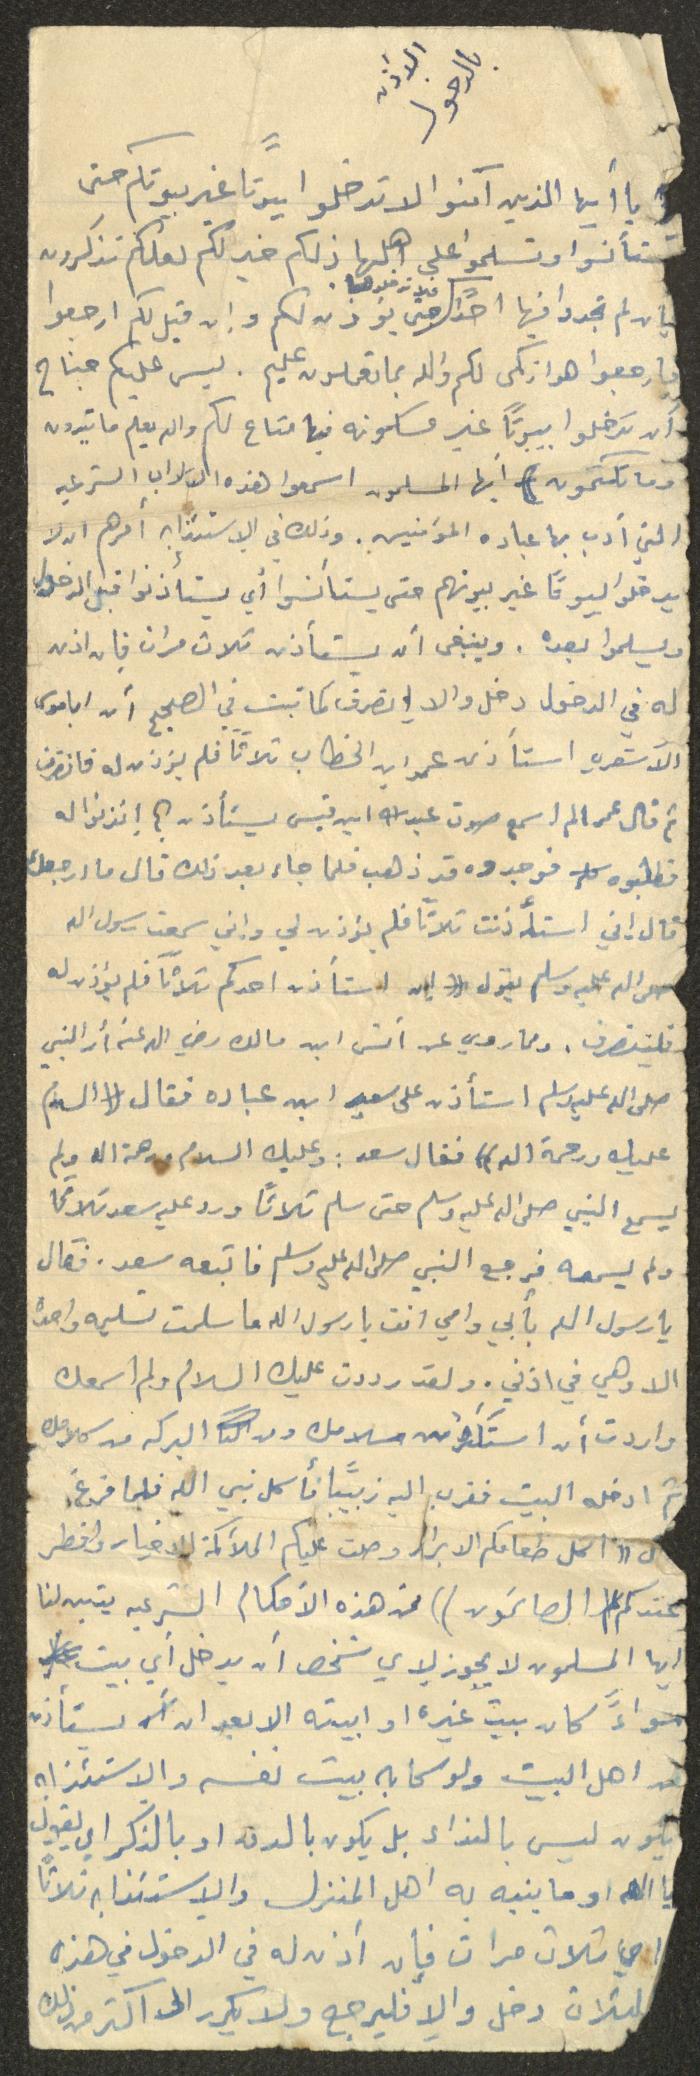 الاذن
بالدخول
يا أيها الذين آمنوا لا تدخلوا بيوتًا غير بيوتكم حتى
تستأنسوا وتسلموا على اهلها ذلكم خير لكم لعلكم تذكرون
فإن لم تجدوا فيها احدًا فلا تدخلوها حتى يؤذن لكم وإن قيل لكم ارجعوا
فارجعوا هو ازكى لكم والله بما تعملون عليم . ليس عليكم جناح
أن تدخلوا بيوتًا غير مسكونه فيها متاع لكم والله يعلم ما تبدون
وما تكتمون ) أيها المسلمون اسمعوا هذه الاداب الشرعيه
التي أدب بها عباده المؤمنين . وذلك في الاستئذان أمرهم ان لا
يدخلوا بيوتًا غير بيوتهم حتى يستأنسوا أي يستأذنوا قبل الدخول
ويسلموا بعده . وينبغي أن يستأذن ثلاث مرات فإن اذن
له في الدخول دخل والا انصرف كما ثبت في الصحيح أن ابا موسى
الاشعري استأذن عمر ابن الخطاب ثلاثًا فلم يؤذن له فانصرف
ثم قال عمر الم اسمع صوت عبد الله ابن قيس يستأذن ؟ إئذنوا له
فطلبوه فوجدوه قد ذهب فلما جاء بعد ذلك قال ما ارجعك
قال إني استأذنت ثلاثًا فلم يؤذن لي وإني سمعت رسول الله
صلى الله عليه وسلم يقول (( إن استأذن احدكم ثلاثًا فلم يؤذن له
فلينصرف . ومما روي عن أنس ابن مالك رضي الله عنه أن النبي
صلى الله عليه وسلم استأذن على سعد ابن عباده فقال (( السلام
عليك ورحمة الله )) فقال سعد : وعليك السلام ورحمة الله ولم
يسمع النبي صلى الله عليه وسلم حتى سلم ثلاثًا ورد عليه سعد ثلاثًا
ولم يسمعه فرجع النبي صلى الله عليه وسلم فاتبعه سعد . فقال
يا رسول الله بأبي وامي انت يا رسول الله ما سلمت تسليمه واحدة
الا وهي في اذني . ولقد رددت عليك السلام ولم اسمعك
واردت أن استكثر من سلامك ومن البركه من كلامك
ثم ادخله البيت فقرب اليه زبيبًا فأكل نبي الله فلما فرغ
ل (( اكل طعامكم الابرار وصلت عليكم الملائكة الاخيار وافطر
عندكم الصائمون )) فمن هذه الأحكام الشرعيه يتبين لنا
ايها المسلمون لا يجوز لاي شخص أن يدخل أي بيت
سواءً كان بيت غيره او ابيته الا بعد ان يستأذن
من اهل البيت ولو كان به بيت نفسه والاستئذان
يكون ليس بالنداء بل يكون بالدق او بالذكر اي يقول
يا الله او ما ينبه به اهل المنزل والاستئذان ثلاثًا
اي ثلاث مرات فإن أذن له في الدخول في هذه
الثلاث دخل والا فليرجع ولا يكرر اكثر من ذلك